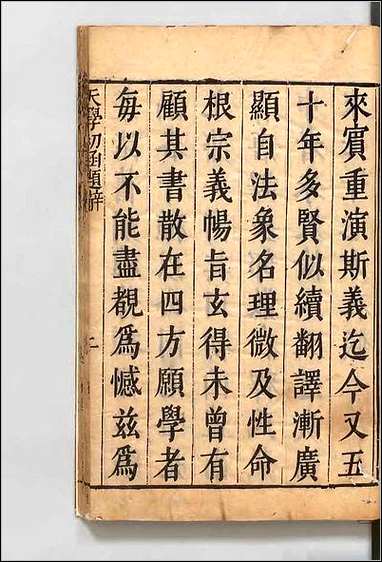 來賓重演斯義迄今又五
十年多賢似續翻譯漸廣
顯自法象名理微及性命
根宗義暢旨玄得未曾有
顧其書散在四方願學者
每以不能盡覩爲憾茲爲
天學初函題辭
二